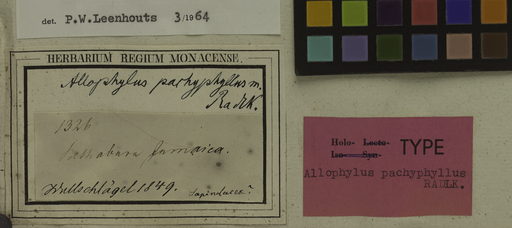 det. P.W.Leenhouts 3/1964
HERBARIUM REGIUM MONACENSE.
Allophylus pachyphyllus m.
Radlk.
1326
Jamaica.
Wullschlägel 1849. Sapindacee?
Holo- Lecto- TYPE
Iso- Syn-
Allophylus pachyphyllus
RADLK.